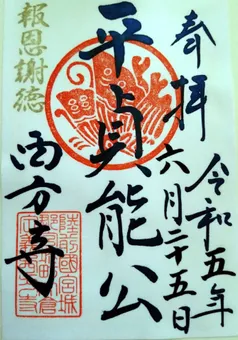 奉拝
令和五年
六月二十五日
平貞能公
報恩謝徳
西方寺
陸前國宮城